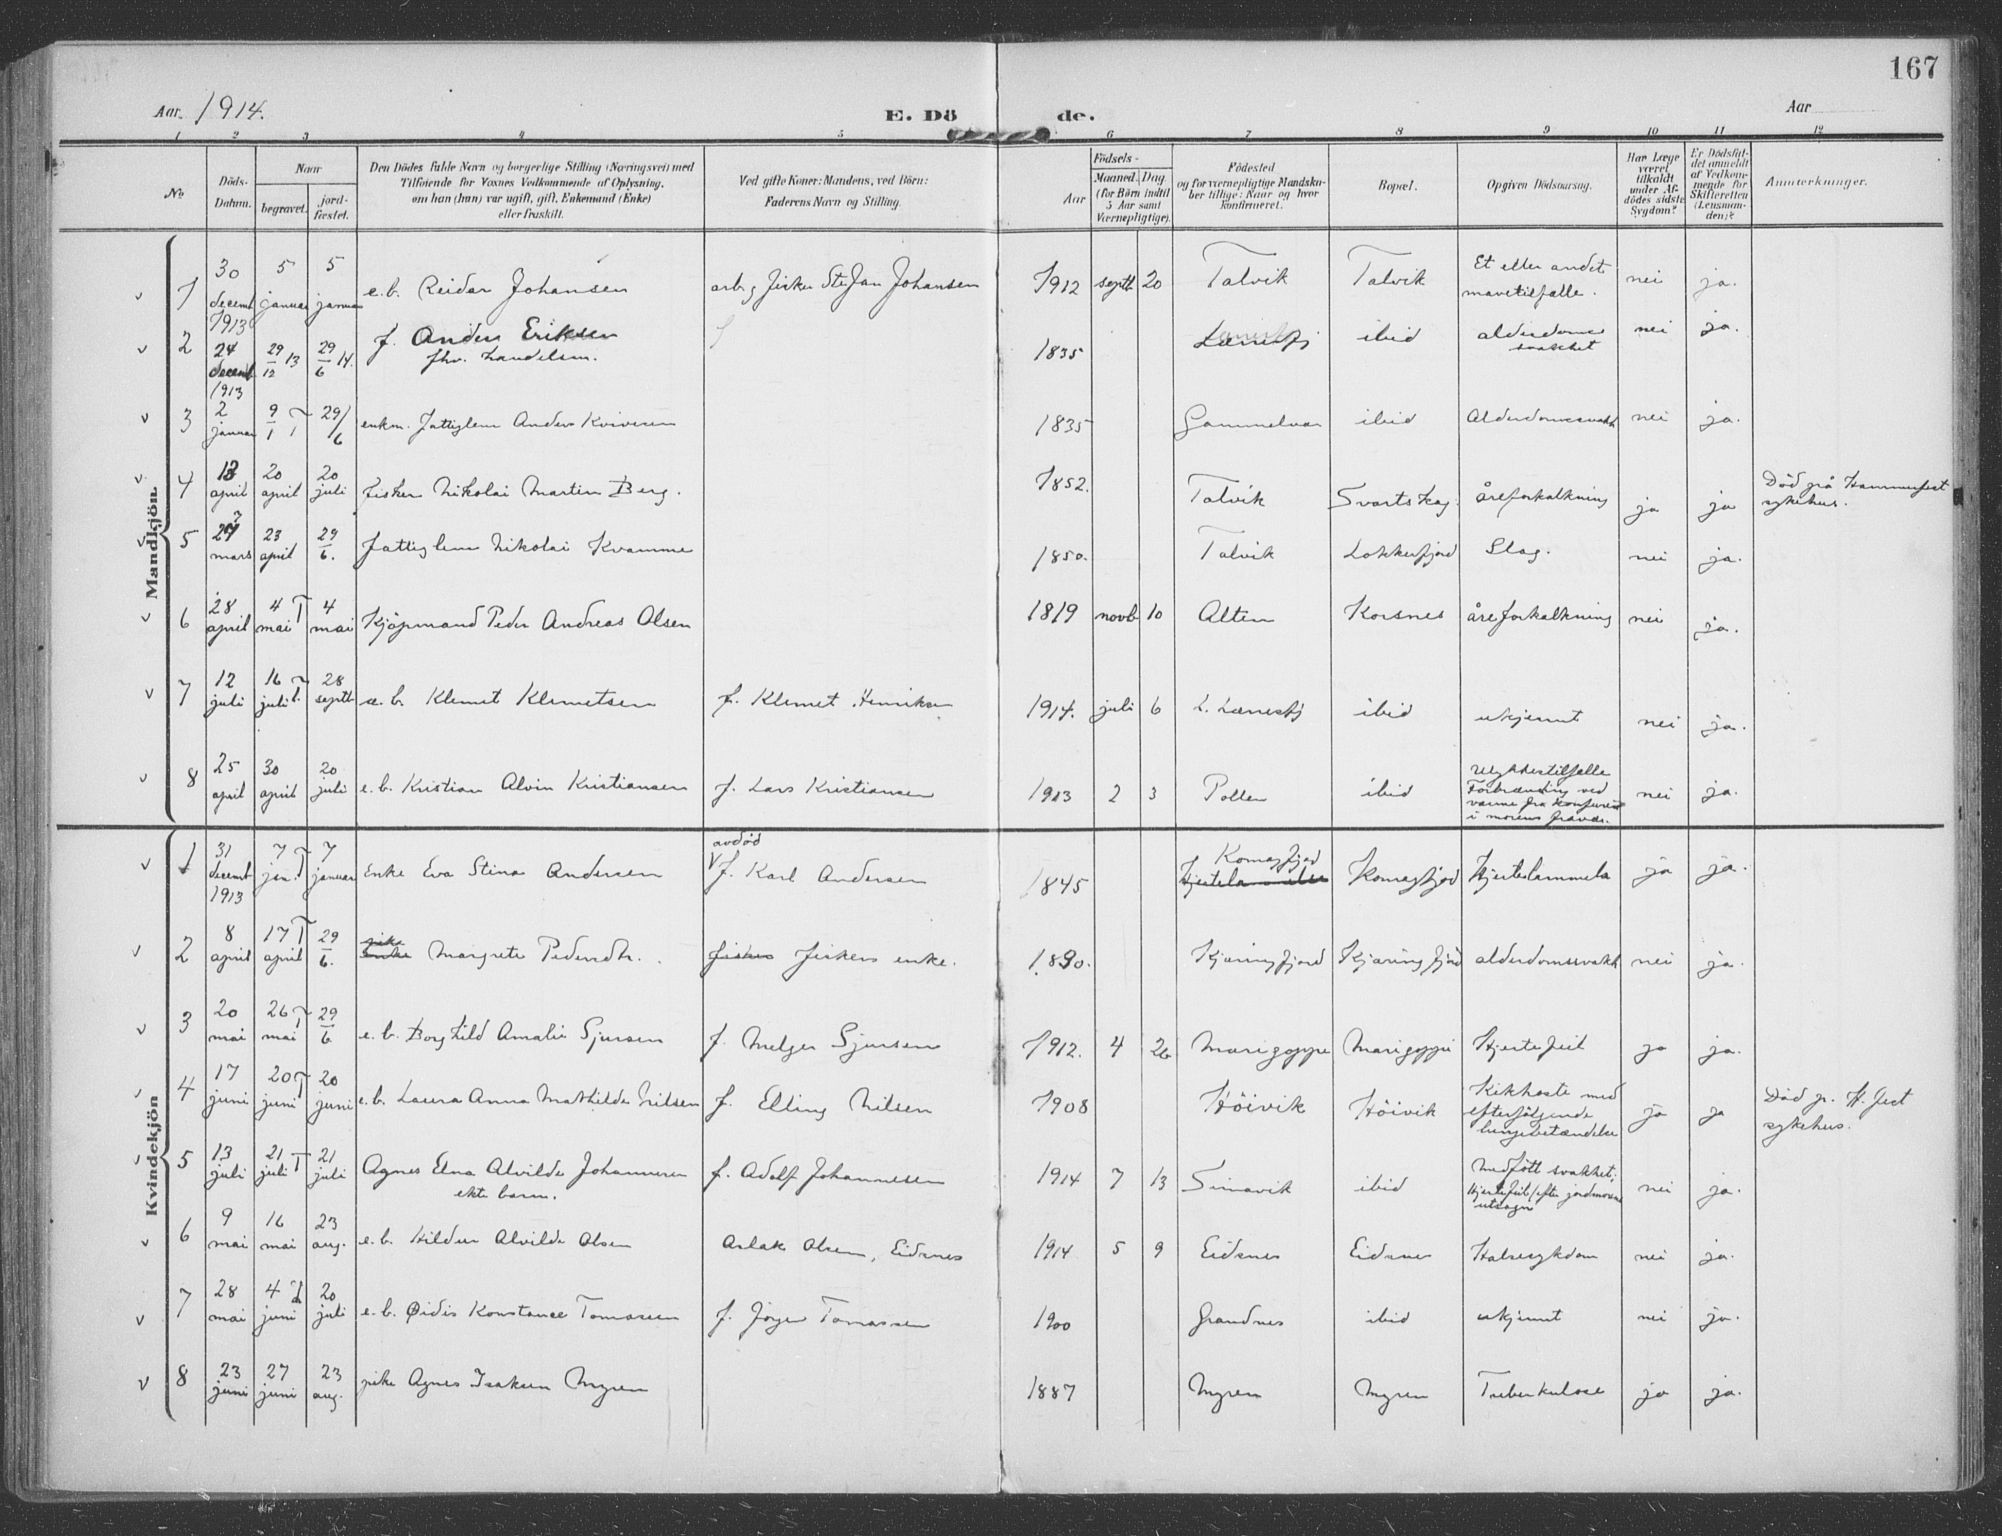 167
Aar 1914.
E. Dö de.
Aar
1 2 3 4 5 6 7 8 9 10 11 12
No
Döds-Datum.
Naar
begravet.
jord-fæstet.
Den Dödes fulde Navn og borgerlige Stilling (Næringsvei) med Tilföiende for Voxnes Vedkommende af Oplysning, om han (hun) var ugift, gift, Enkemand (Enke) eller fraskilt.
Ved gifte Koner: Mandens, ved Börn: Faderens Navn og Stilling.
Födsels-
Aar
Maaned. Dag
(for Börn indtil 5 Aar samt Værnepligtige).
Födested og for værnepligtige Mandskaber tillige: Naar og hvor konfirmeret.
Bopæl.
Opgiven Dödsaarsag.
Har Læge været tilkaldt under Afdödes sidste Sygdom?
Er Dödsfaldet anmeldt af Vedkommende for Skifteretten (Lensmanden)?
Anmerkninger.
Mandkjön.
v 1 30 decemt 1913 5 januar 5 januar e.b. Reidar Johansen arb. Fisker Stefan Johansen 1912 septb 20 Talvik Talvik Et eller andet mavetilfælle. nei ja.
v 2 24 decemt 1913 29/12 13 29/6 14. f. Anders Eriksen fhv. handelsm. 1835 ibid alderdoms svakhet nei ja.
v 3 2 januar 9/1 T 29/6 enkm. fattiglem Anders 1835 ibid Alderdomssvakh nei ja.
v 4 april 20 april 20 juli Fisker Nikolai Martin Berg. 1852. Talvik åreforkalkning ja ja Död på Hammerfest sykehus.
v 5 mars 23 april 29/6. Fattiglem Nikolai Kvamme 1850. Talvik Lokkerfjord Slag. nei ja.
v 6 28 april 4 mai T 4 mai Kjöpmand Peder Andreas Olsen 1819 novb 10 Alten Korsnes åreforkalkning nei ja.
v 7 12 juli 16 juli T 28 septb e.b. Klemet Klemetsen f. Klemet Henriksen 1914. juli 6 ibid ukjennt nei ja.
v 8 25 april 30 april 20 juli e.b. Kristian Alvin Kristiansen f. Lars Kristiansen 1913 2 3 Pollen ibid Ulykkestilfælle Forbrænning ved varme fra komfuren i morens fravær. nei ja.
Kvindekjön
v 1 31 decemt 1913 7 jan. T 7 januar Enke Eva Stina Andersen avdöd f. Karl Andersen 1845 Komagfjord Komagfjord Hjertelammela ja ja.
v 2 8 april 17 april T 29/6. pike Margrete Pedersdtr. fiskers enke. Kjæringfjord Kjæringfjord alderdomssvakh nei ja.
v 3 20 mai 26 mai T 29/6 e.b. Borghild Amalie Sjursen f. Melger Sjursen 1912. 4 26 Marigoppe Marigoppi Hjertefeil ja ja.
v 4 17 juni 20 juni T 20 juni e.b. Laura Anna Mathilde Nilsen f. Elling Nilsen 1908 Höivik Höivik Kikhoste med efterfölgende lungebetændelse ja ja Död p. H.fest sykehus.
v 5 13 juli 21 juli T 21 juli Agnes Elna Alvilde Johannesen ekte barn. f. Adolf Johannesen 1914 7 13 Simavik ibid Medfött svakhet, Hjertefeil (efter jordmorens utsagn nei ja.
v 6 9 mai 16 mai 23 aug. e.b. Hildur Alvilde Olsen Aslak Olsen, Eidsnes 1914 5 9 Eidsnes Eidsnes Halssykdom nei ja.
v 7 28 mai 4 juni 20 juli e.b. Øidis Konstance Tomassen f. Jörgen Tomassen 1900 Grandnes ibid ukjennt nei ja.
v 8 23 juni 27 juni 23 aug. pike Agnes Isaksen Myren 1887 Myren Myren Tuberkulose ja ja.